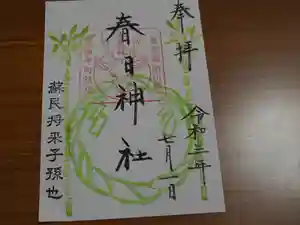 奉拝
令和三年
七月一日
春日神社
蘇民将来子孫也